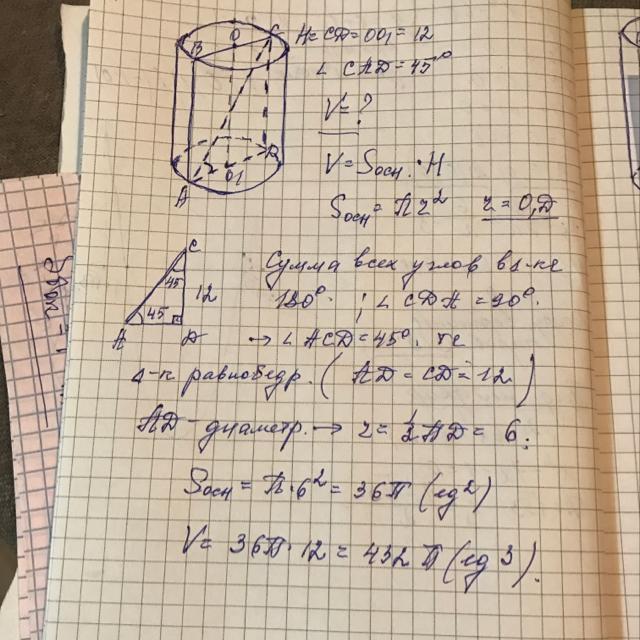 H = CD = OO₁ = 12
∠ CAD = 45°
V = ?
V = Sосн. · H
Sосн = Пr² r = O₁D
B O C
A O₁ D
C
45
12
45
A D
Сумма всех углов в Δ-ке
180° ; ∠ CDA = 90°.
→ ∠ ACD = 45°. те
Δ-к равнобедр. ( AD = CD = 12 )
AD - диаметр. → r = ½ AD = 6.
Sосн = П · 6² = 36П (ед²)
V = 36П · 12 = 432 П (ед³).